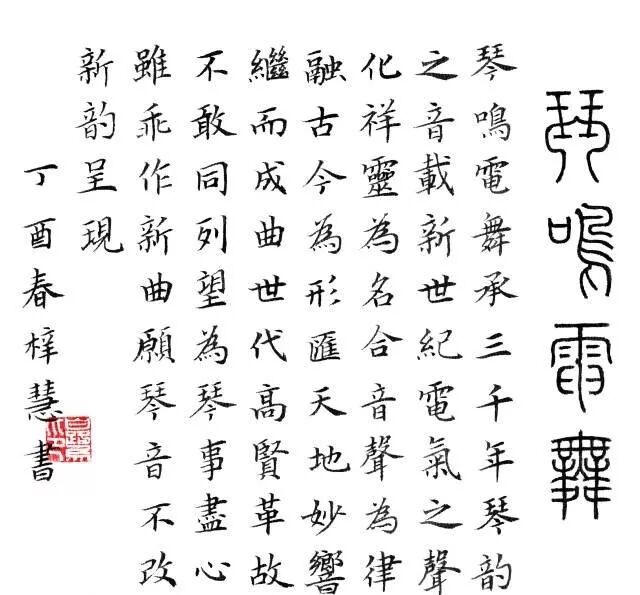 琴鳴電舞
琴鳴電舞承三千年琴韵
之音載新世紀電氣之聲
化祥靈為名合音聲為律
融古今為形匯天地妙響
繼而成曲世代高賢革故
不敢同列望為琴事盡心
雖乖作新曲願琴音不改
新韵呈現
丁酉春梓慧書